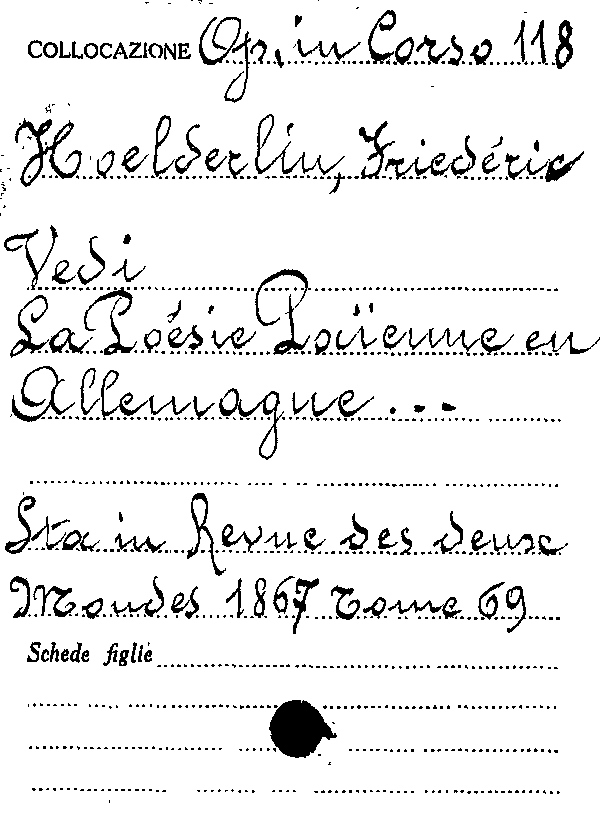 COLLOCAZIONE Op. in Corso 118
Hoelderlin, Friedéric
Vedi
La Poésie Païenne en
Allemagne...
Sta in Revue des deux
Mondes 1867 Tome 69
Schede figlie